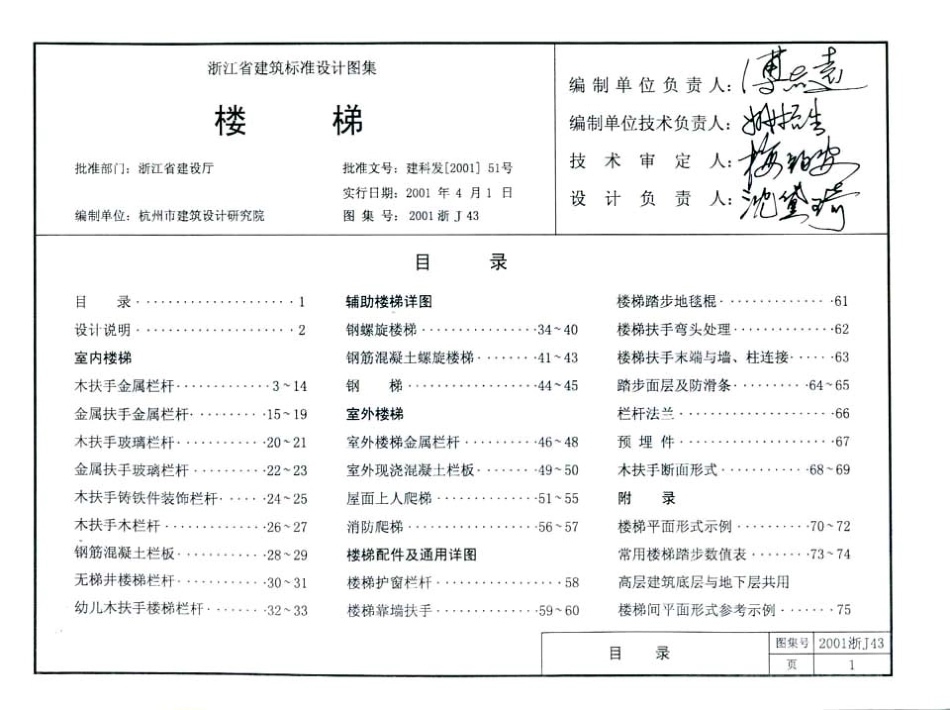 浙江省建筑标准设计图集
楼 梯
批准部门：浙江省建设厅
批准文号：建科发[2001] 51号
实行日期：2001 年 4 月 1 日
编制单位：杭州市建筑设计研究院
图 集 号：2001浙J43
编 制 单 位 负 责 人：
编制单位技术负责人：
技 术 审 定 人：
设 计 负 责 人：
目 录
目 录····················1
设计说明····················2
室内楼梯
木扶手金属栏杆············3~14
金属扶手金属栏杆··········15~19
木扶手玻璃栏杆···········20~21
金属扶手玻璃栏杆··········22~23
木扶手铸铁件装饰栏杆······24~25
木扶手木栏杆·············26~27
钢筋混凝土栏板···········28~29
无梯井楼梯栏杆···········30~31
幼儿木扶手楼梯栏杆·······32~33
辅助楼梯详图
钢螺旋楼梯···············34~40
钢筋混凝土螺旋楼梯·······41~43
钢 梯···············44~45
室外楼梯
室外楼梯金属栏杆·········46~48
室外现浇混凝土栏板·······49~50
屋面上人爬梯·············51~55
消防爬梯················56~57
楼梯配件及通用详图
楼梯护窗栏杆················58
楼梯靠墙扶手·············59~60
楼梯踏步地毯棍··············61
楼梯扶手弯头处理············62
楼梯扶手末端与墙、柱连接·····63
踏步面层及防滑条·········64~65
栏杆法兰···················66
预 埋 件···················67
木扶手断面形式···········68~69
附 录
楼梯平面形式示例·········70~72
常用楼梯踏步数值表·······73~74
高层建筑底层与地下层共用
楼梯间平面形式参考示例······75
目 录
图集号 2001浙J43
页 1